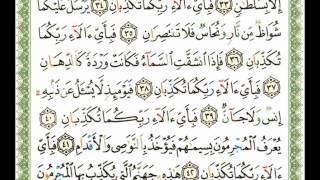 إِلَّا بِسُلْطَٰنٍ ٣٣ فَبِأَىِّ ءَالَآءِ رَبِّكُمَا تُكَذِّبَانِ ٣٤ يُرْسَلُ عَلَيْكُمَا
شُوَاظٌ مِّن نَّارٍ وَنُحَاسٌ فَلَا تَنتَصِرَانِ ٣٥ فَبِأَىِّ ءَالَآءِ رَبِّكُمَا
تُكَذِّبَانِ ٣٦ فَإِذَا ٱنشَقَّتِ ٱلسَّمَآءُ فَكَانَتْ وَرْدَةً كَٱلدِّهَانِ
٣٧ فَبِأَىِّ ءَالَآءِ رَبِّكُمَا تُكَذِّبَانِ ٣٨ فَيَوْمَئِذٍ لَّا يُسْـَٔلُ عَن ذَنۢبِهِۦٓ
إِنسٌ وَلَا جَآنٌّ ٣٩ فَبِأَىِّ ءَالَآءِ رَبِّكُمَا تُكَذِّبَانِ ٤٠
يُعْرَفُ ٱلْمُجْرِمُونَ بِسِيمَٰهُمْ فَيُؤْخَذُ بِٱلنَّوَٰصِى وَٱلْأَقْدَامِ ٤١ فَبِأَىِّ
ءَالَآءِ رَبِّكُمَا تُكَذِّبَانِ ٤٢ هَٰذِهِۦ جَهَنَّمُ ٱلَّتِى يُكَذِّبُ بِهَا ٱلْمُجْرِمُونَ